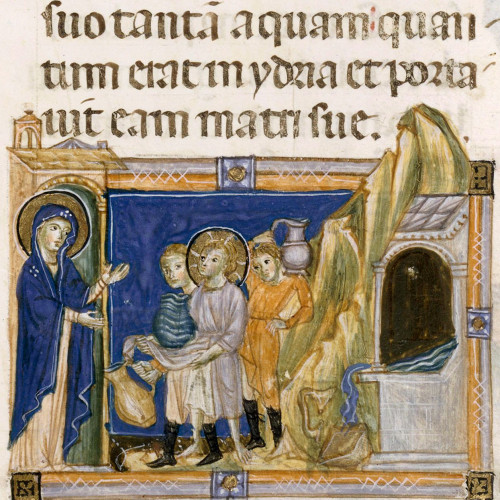 suo tantā aquam quan
tum erat in ydria et porta
uit eam matri sue.